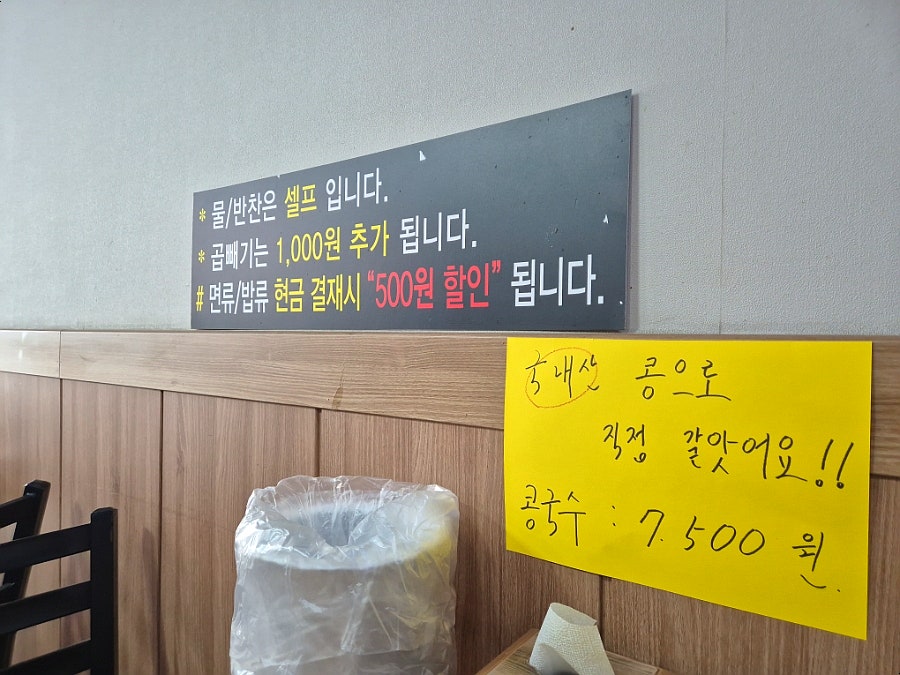 * 물/반찬은 셀프 입니다.
* 곱빼기는 1,000원 추가 됩니다.
# 면류/밥류 현금 결재시 "500원 할인" 됩니다.
국내산 콩으로
직접 갈앗어요!!
콩국수 : 7.500 원.